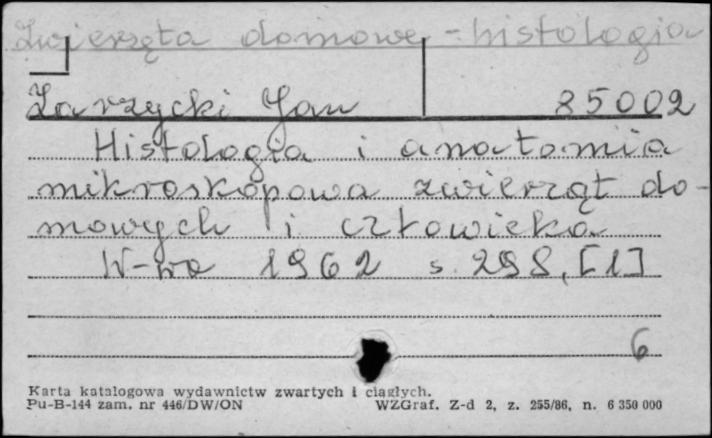 Zwierzęta domowe - histologia
Zarzycki Jan 85002
Histologia i anatomia
mikroskopowa zwierząt do-
mowych i człowieka
W-wa 1962 s. 298, [1]
6
Karta katalogowa wydawnictw zwartych i ciągłych.
Pu-B-144 zam. nr 446/DW/ON WZGraf. Z-d 2, z. 255/86, n. 6 350 000